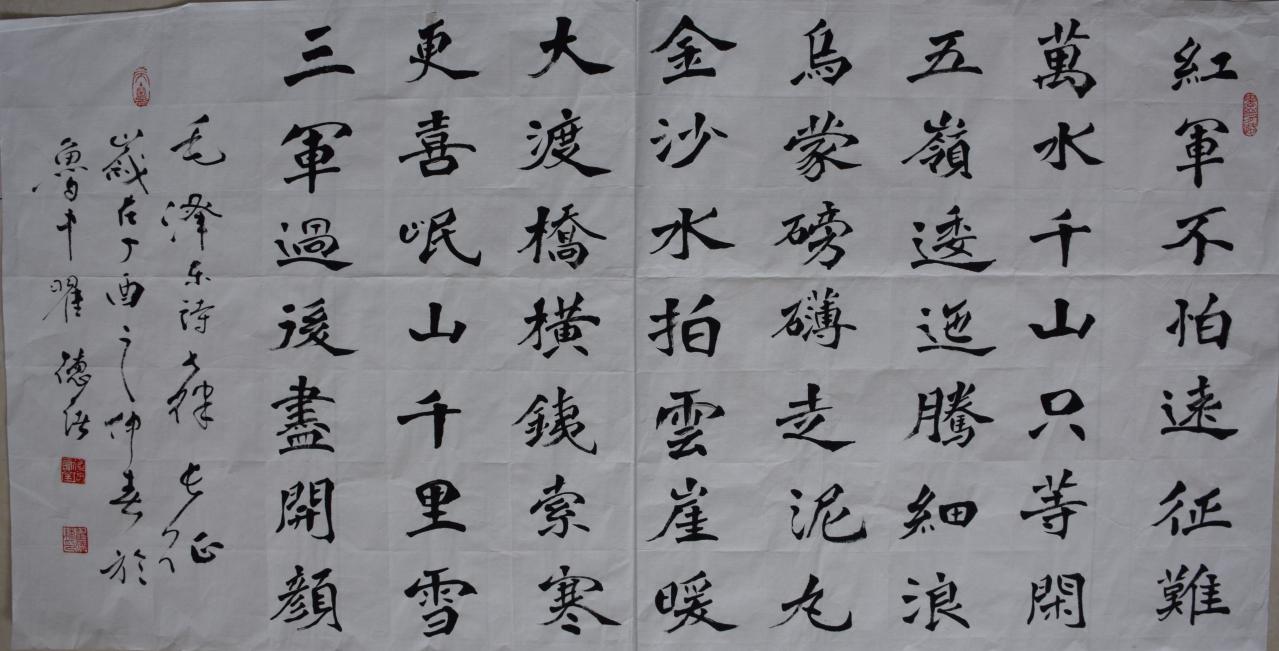 紅軍不怕遠征難
萬水千山只等閑
五嶺逶迤騰細浪
烏蒙磅礴走泥丸
金沙水拍雲崖暖
大渡橋橫銕索寒
更喜岷山千里雪
三軍過後盡開顔
毛澤东詩七律 长征
歲在丁酉之仲春於
魯中瞿德